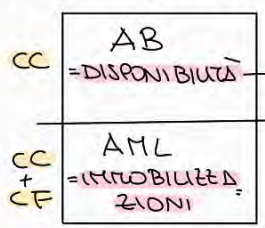 CC
AB
=DISPONIBILITÀ
CC
+
CF
AML
=IMMOBILIZZA
ZIONI=